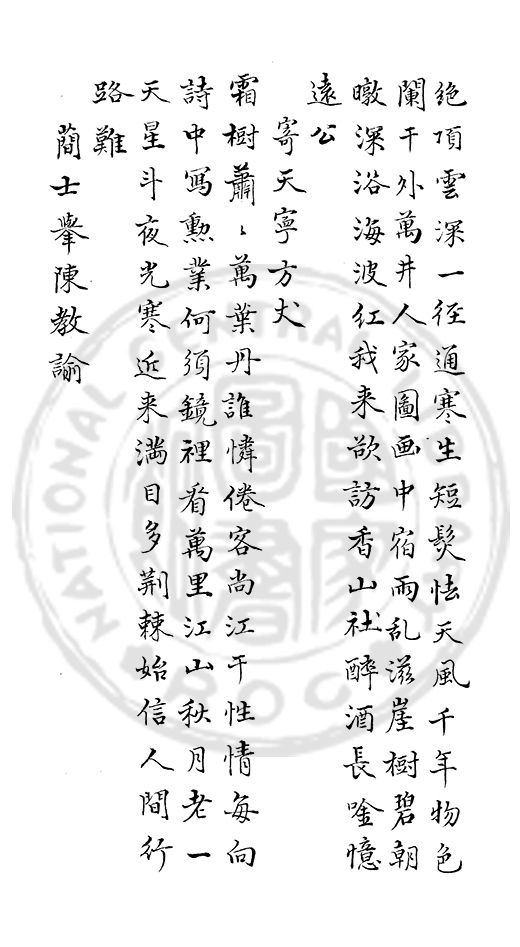 絶頂雲深一径通寒生短髮怯天風千年物色
闌干外萬井人家圖画中宿雨乱滋崖樹碧朝
暾深浴海波紅我来欲訪香山社醉酒長唫憶
遠公
寄天寧方丈
霜樹蕭〻萬葉丹誰憐倦客尚江干性情每向
詩中寫勲業何須鏡裡看萬里江山秋月老一
天星斗夜光寒近来滿目多荆棘始信人間行
路難
蕳士舉陳教諭
NATIONAL CENTRAL LIBRARY
R.O.C